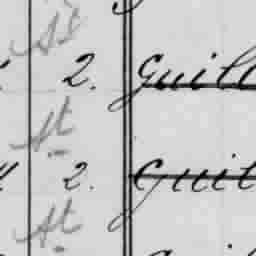 St
2. Guill
St
2. Guil
St